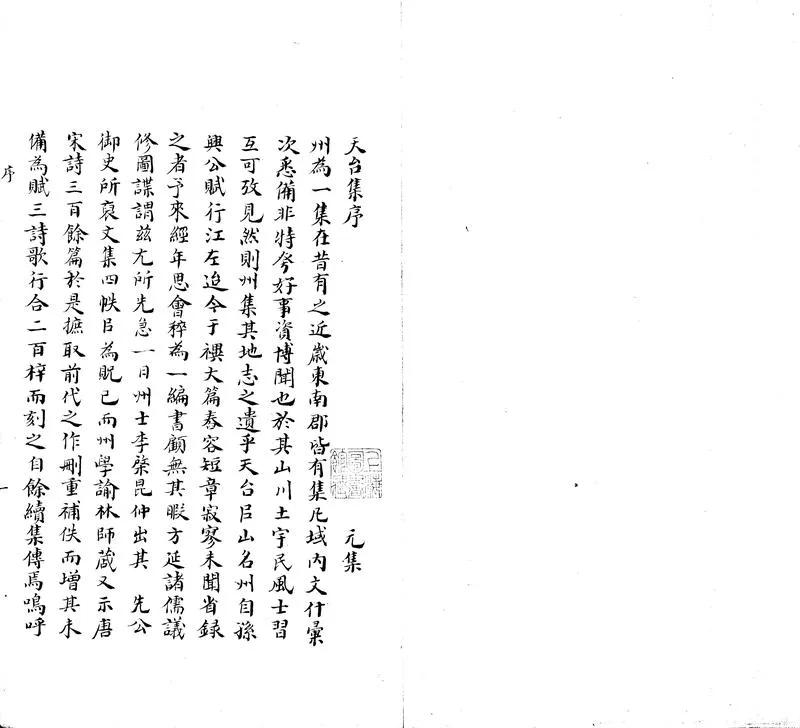 天台集序
元集
州為一集在昔有之近歲東南郡皆有集凡域內文什彙
次悉備非特夸好事資博聞也於其山川土宇民風士習
互可攷見然則州集其地志之遺乎天台㠯山名州自孫
興公賦行江左迨今于禩大篇舂容短章寂寥未聞省録
之者予來經年思會稡為一編書顧無其暇方延諸儒議
修圖諜謂兹尤所先急一日州士李棨昆仲出其 先公
御史所裒文集四帙㠯為貺已而州學諭林師蒧又示唐
宋詩三百餘篇於是摭取前代之作刪重補佚而增其未
備為賦三詩歌行合二百梓而刻之自餘續集傳焉嗚呼
序
一